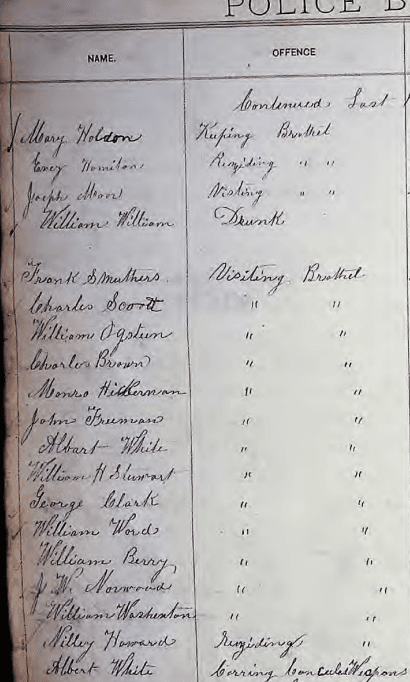 POLICE B
NAME. OFFENCE
Contenued Last
Mary Holdon Kuping Brothel
Emey Homilton Reziding " "
Joseph Moor Visting " "
William William Drunk
Frank Smuthers. Visiting Brothel
Charles Scott " "
William Ogstein " "
Charles Brown " "
Monro Hickernan " "
John Freeman " "
Albart White " "
William H Stewart " "
George Clark " "
William Word " "
William Berry " "
J W. Norwood " "
William Washenton " "
Nilley Howard Reziding "
Albert White Corring Conculed Weapons